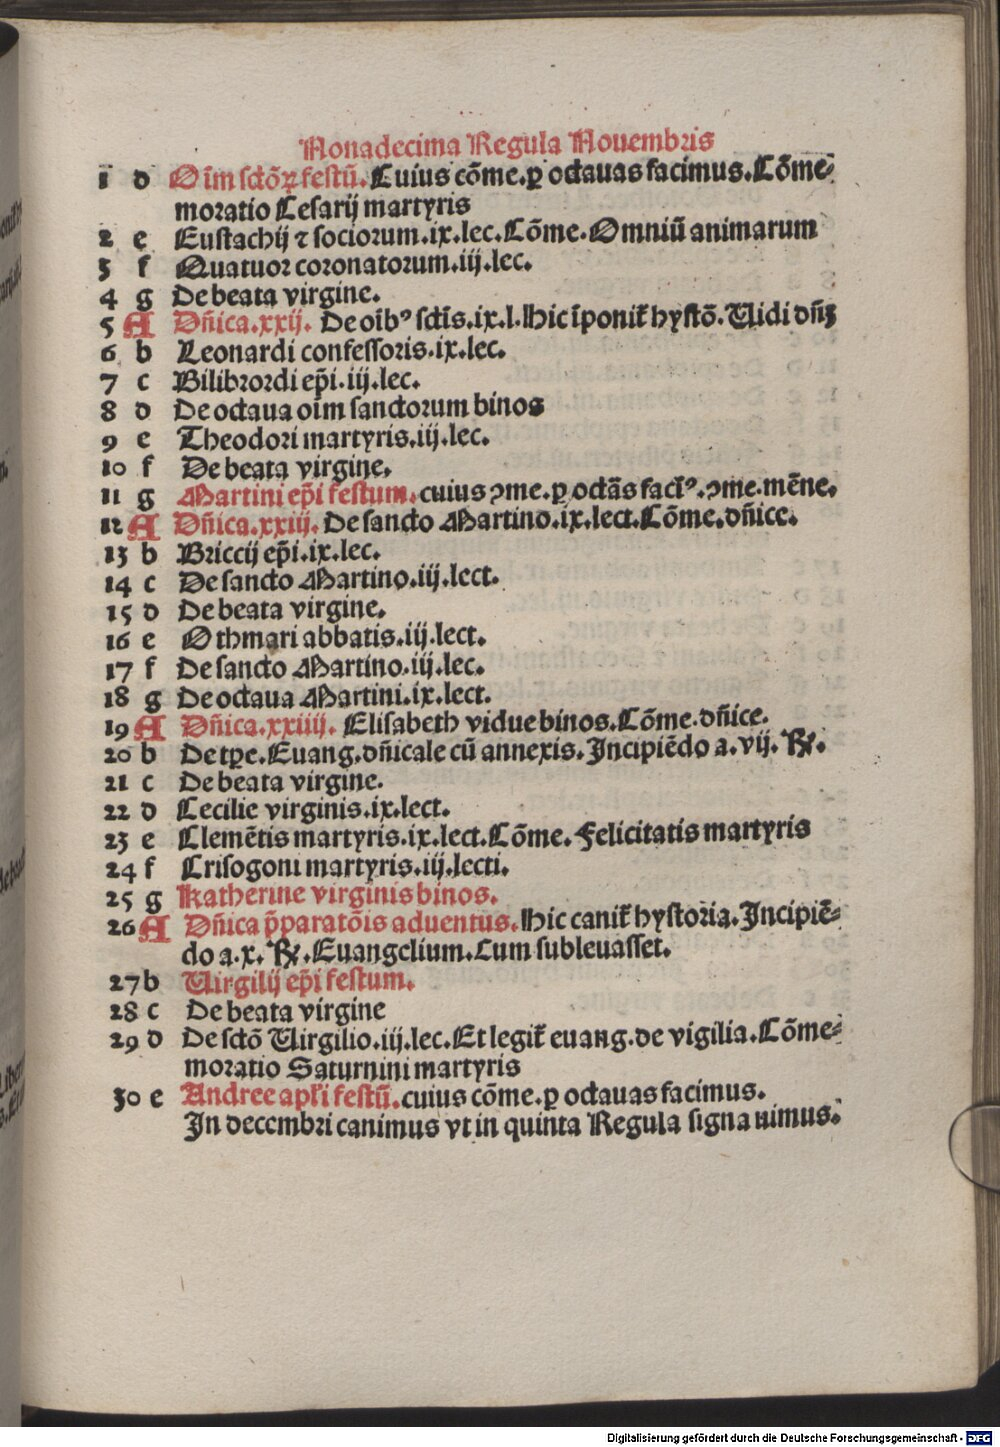 Nonadecima Regula Nouembris
1 d Oīm sctōꝝ festū. Cuius cōme. ꝑ octauas facimus. Cōme-
moratio Cesarij martyris
2 e Eustachij ⁊ sociorum. ix. lec. Cōme. Omniū animarum
3 f Quatuor coronatorum. iij. lec.
4 g De beata virgine.
5 A Dn̄ica. xxij. De oīb⁹ sctīs. ix. l. Hic īponit̄ hystō. Uidi dn̄ʒ
6 b Leonardi confessoris. ix. lec.
7 c Bilibrordi ep̄i. iij. lec.
8 d De octaua oīm sanctorum binos
9 e Theodori martyris. iij. lec.
10 f De beata virgine.
11 g Martini ep̄i festum. cuius ꝯme. ꝑ octās facī⁹. ꝯme. mēne.
12 A Dn̄ica. xxiij. De sancto Martino. ix. lect. Cōme. dn̄ice.
13 b Briccij ep̄i. ix. lec.
14 c De sancto Martino. iij. lect.
15 d De beata virgine.
16 e Othmari abbatis. iij. lect.
17 f De sancto Martino. iij. lec.
18 g De octaua Martini. ix. lect.
19 A Dn̄ica. xxiiij. Elisabeth vidue binos. Cōme. dn̄ice.
20 b De tꝑe. Euang. dn̄icale cū annexis. Incipiēdo a. vij. ℟.
21 c De beata virgine.
22 d Cecilie virginis. ix. lect.
23 e Clemētis martyris. ix. lect. Cōme. Felicitatis martyris
24 f Crisogoni martyris. iij. lecti.
25 g Katherine virginis binos.
26 A Dn̄ica p̄paratōis aduentus. Hic canit̄ hystoria. Incipiē-
do a. x. ℟. Euangelium. Cum subleuasset.
27 b Uirgilij ep̄i festum.
28 c De beata virgine
29 d De sctō Uirgilio. iij. lec. Et legit̄ euang. de vigilia. Cōme-
moratio Saturnini martyris
30 e Andree apl̄i festū. cuius cōme. ꝑ octauas facimus.
In decembri canimus vt in quinta Regula signauimus.
Digitalisierung gefördert durch die Deutsche Forschungsgemeinschaft - DFG